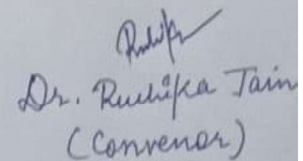 Dr. Ruchika Jain
(Convenor)